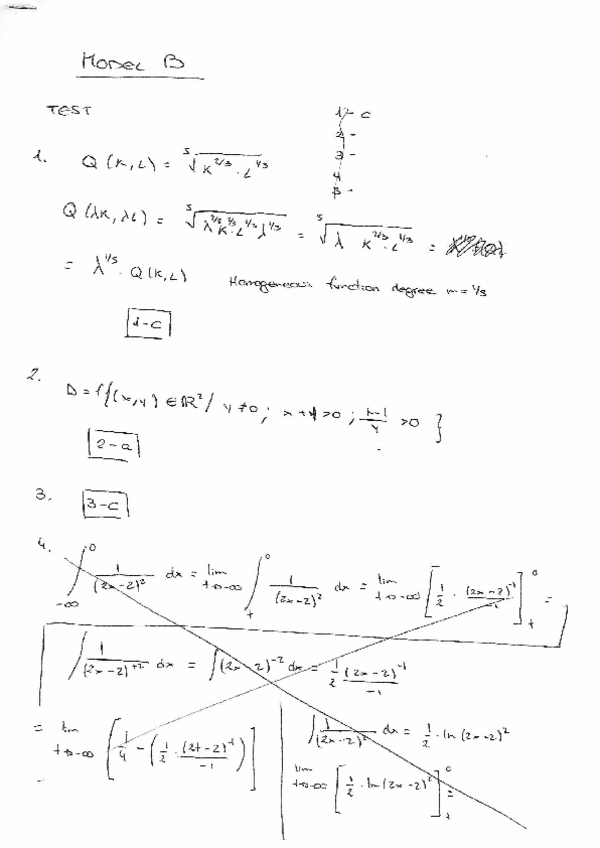 Model B
TEST
1- C
2-
3-
4
5-
1. Q(K,L) = ⁵√(K^{2/3} · L^{1/3})
Q(λK, λL) = ⁵√(λ^{2/3} K^{2/3} · L^{1/3} λ^{1/3}) = ⁵√(λ K^{2/3} · L^{1/3}) =
= λ^{1/5} · Q(K,L) Homogeneous function degree m = 1/5
1-C
2. D = {(x,y) ∈ ℝ² / y ≠ 0; x + y > 0; (x-1)/y > 0}
2-a
3. 3-C
4. ∫_{-∞}^{0} 1/(2x-2)² dx = lim_{t→-∞} ∫_{t}^{0} 1/(2x-2)² dx = lim_{t→-∞} [1/2 · (2x-2)^{-1}/-1]_{t}^{0} =
∫ 1/(2x-2)^{+2} dx = ∫(2x-2)^{-2} dx = 1/2 (2x-2)^{-1}/-1
= lim_{t→-∞} [1/4 - (1/2 · (2t-2)^{-1}/-1)]
∫ 1/(2x-2)² dx = 1/2 · ln(2x-2)²
lim_{t→-∞} [1/2 · ln(2x-2)²]_{t}^{0} =